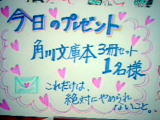 今日のプレゼント
角川文庫本3冊セット
1名様
これだけは、
絶対にやめられ
ないこと。